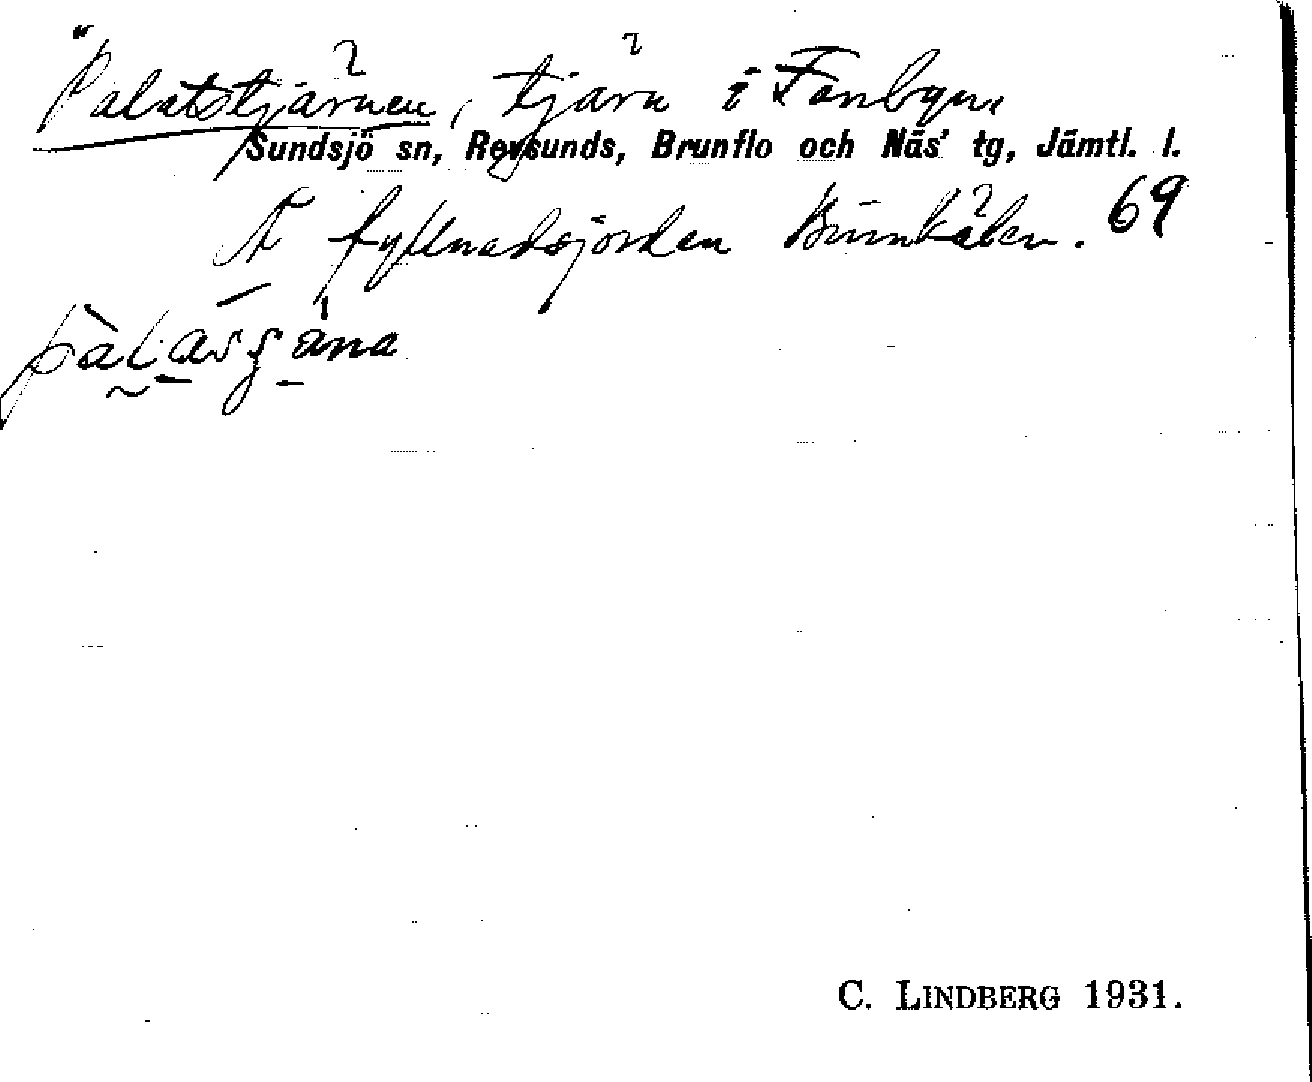 "Palatstjärnen, tjärn i Fanbyns
Sundsjö sn, Revsunds, Brunflo och Näs' tg, Jämtl. l.
Å fyllnadsjorden 69
C. LINDBERG 1931.